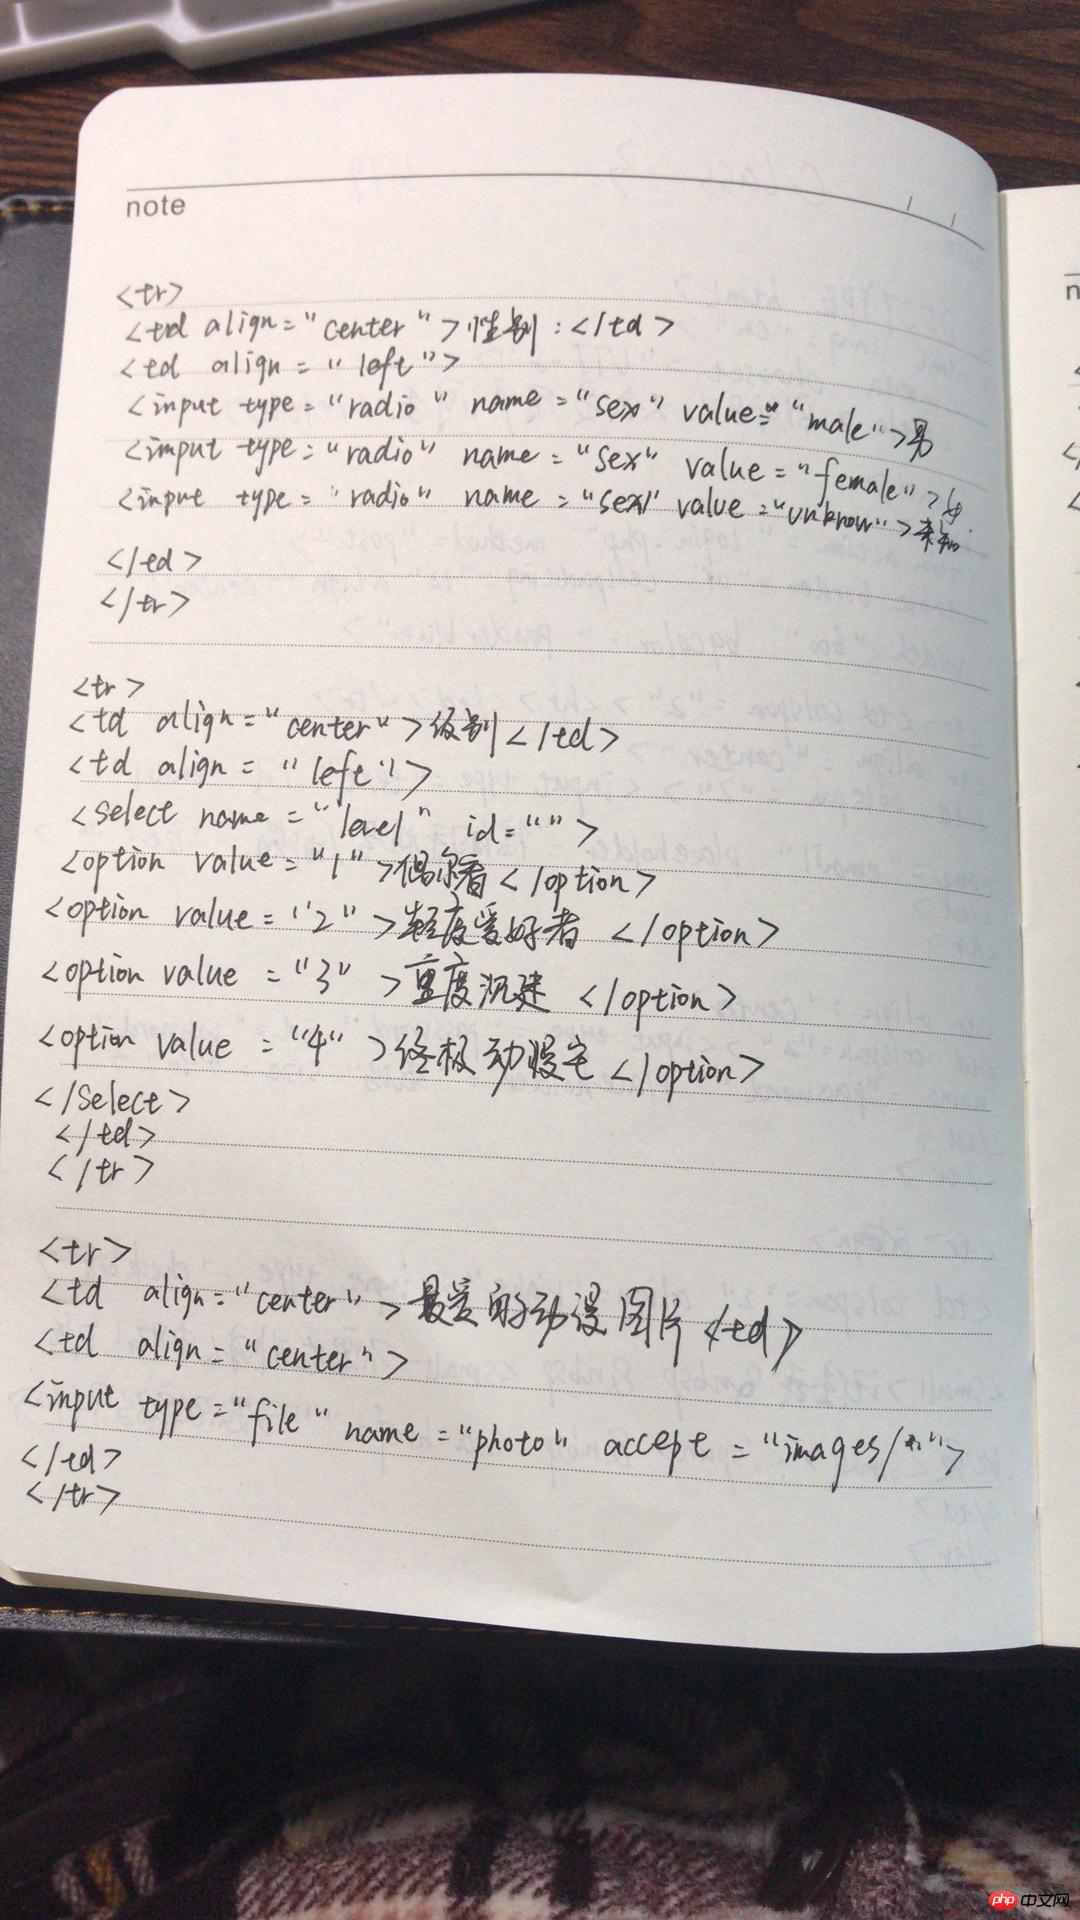 note
<tr>
<td align="center">性别:</td>
<td align="left">
<input type="radio" name="sex" value="male">男
<input type="radio" name="sex" value="female">女
<input type="radio" name="sex" value="unknow">未知
</td>
</tr>
<tr>
<td align="center">级别</td>
<td align="left">
<select name="level" id="">
<option value="1">偶尔看</option>
<option value="2">轻度爱好者</option>
<option value="3">重度沉迷</option>
<option value="4">终极动漫宅</option>
</Select>
</td>
</tr>
<tr>
<td align="center">最爱的动漫图片<td>
<td align="center">
<input type="file" name="photo" accept="images/*">
</td>
</tr>
php中文网